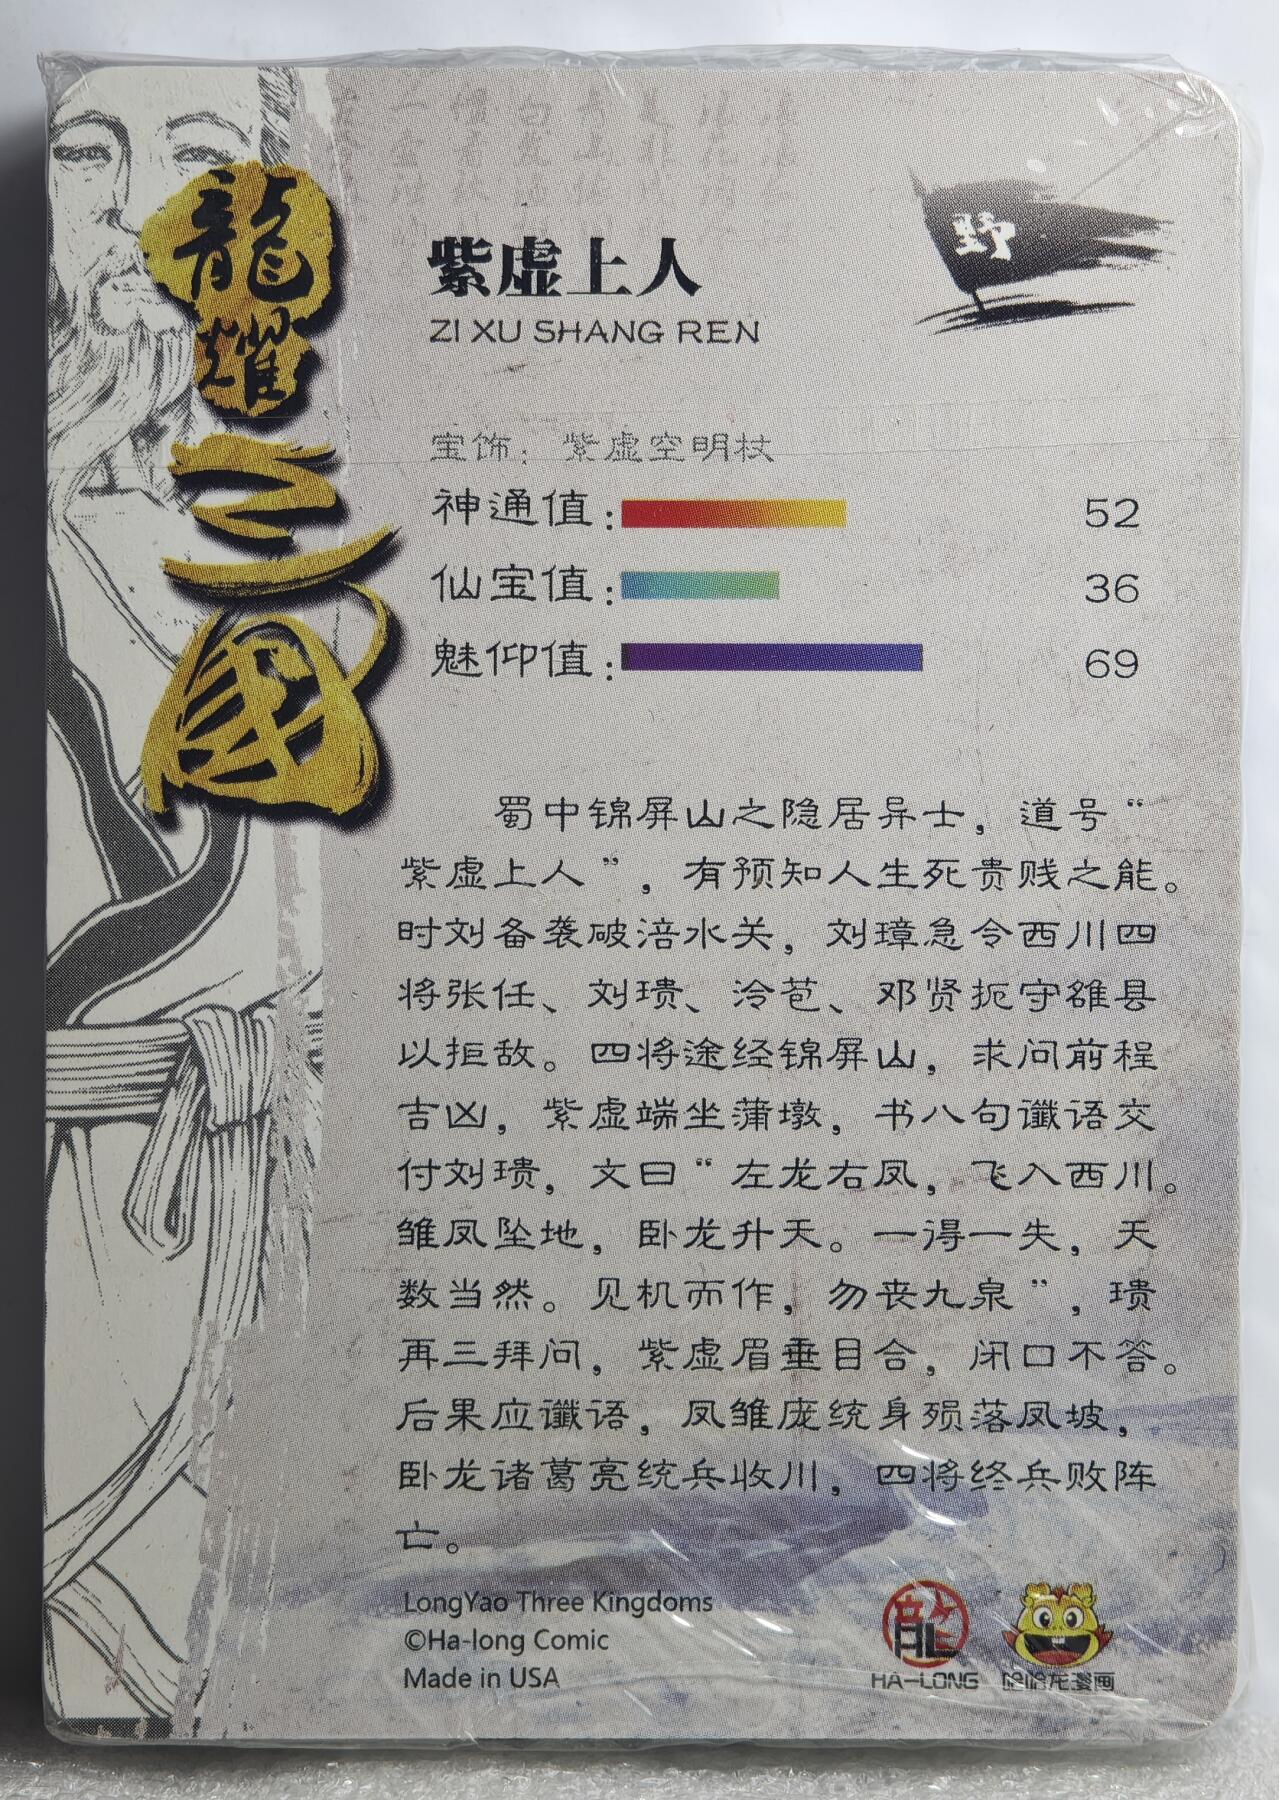 龍耀三國
紫虚上人
ZI XU SHANG REN
野
宝饰：紫虚空明杖
神通值： 52
仙宝值： 36
魅仰值： 69
蜀中锦屏山之隐居异士，道号“
紫虚上人”，有预知人生死贵贱之能。
时刘备袭破涪水关，刘璋急令西川四
将张任、刘璝、泠苞、邓贤扼守雒县
以拒敌。四将途经锦屏山，求问前程
吉凶，紫虚端坐蒲墩，书八句谶语交
付刘璝，文曰“左龙右凤，飞入西川。
雏凤坠地，卧龙升天。一得一失，天
数当然。见机而作，勿丧九泉”，璝
再三拜问，紫虚眉垂目合，闭口不答。
后果应谶语，凤雏庞统身殒落凤坡，
卧龙诸葛亮统兵收川，四将终兵败阵
亡。
LongYao Three Kingdoms
©Ha-long Comic
Made in USA
龍
HA-LONG
哈哈龙漫画